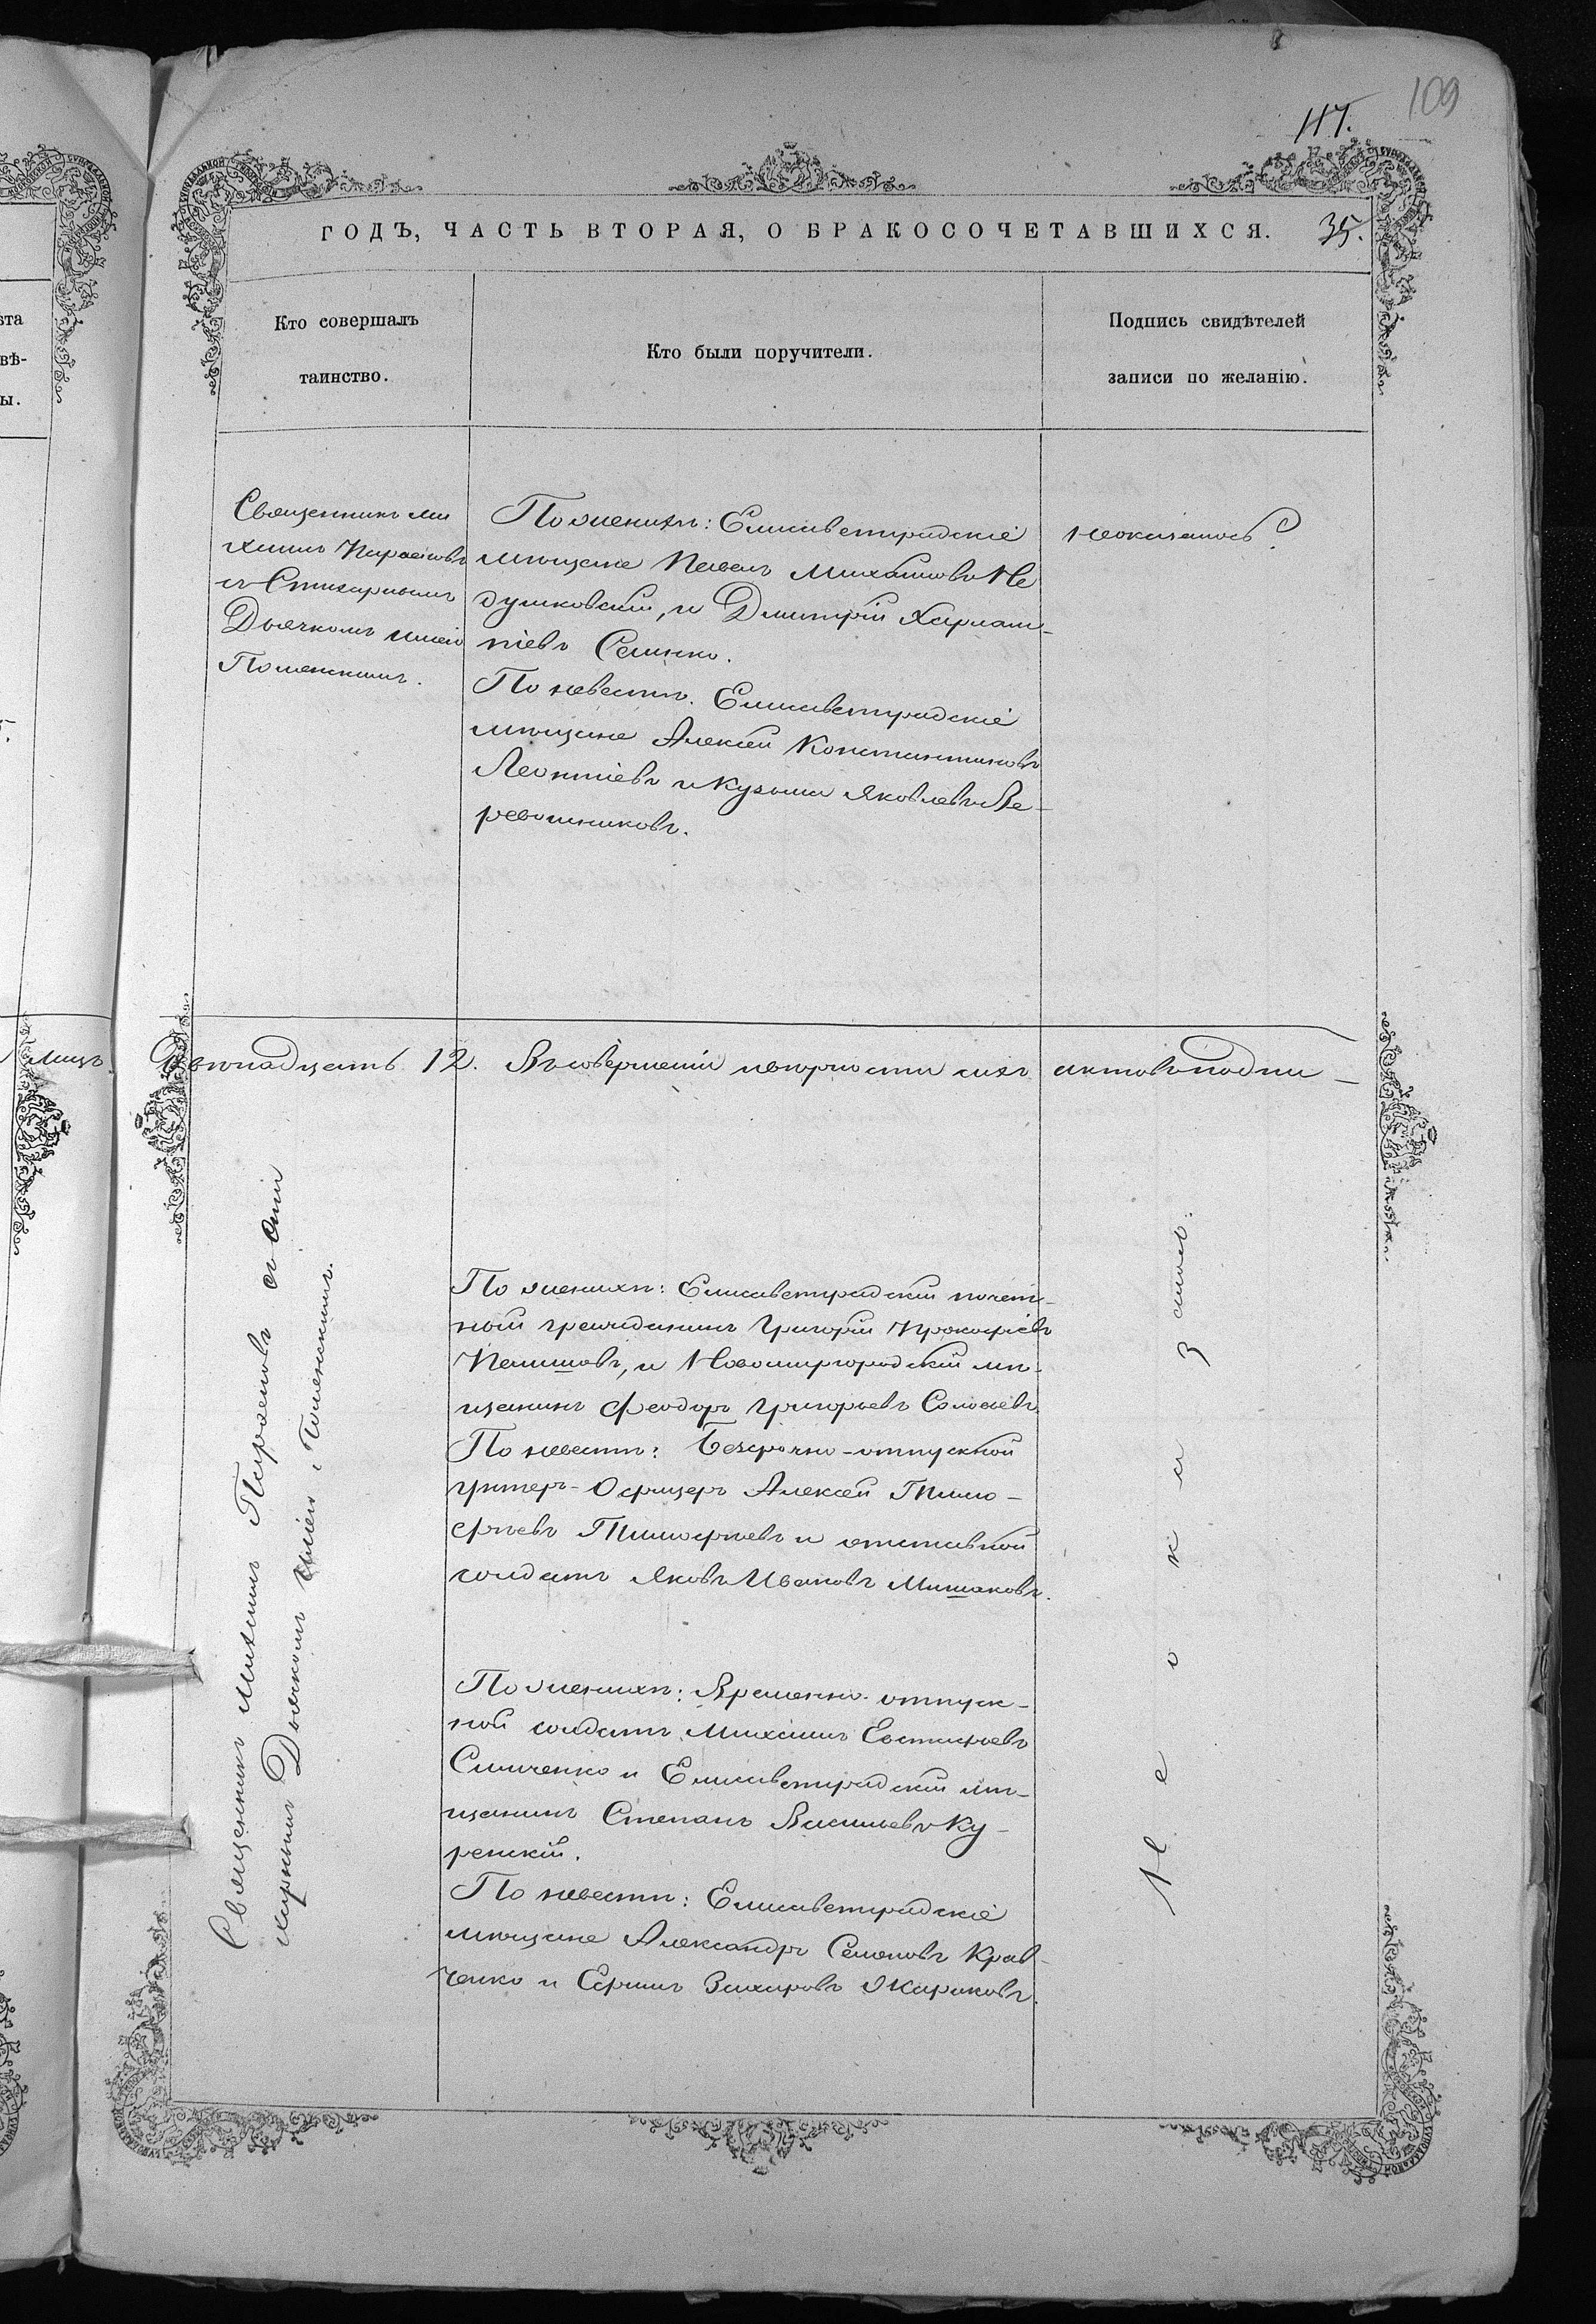 109
117.
ГОДЪ, ЧАСТЬ ВТОРАЯ, О БРАКОСОЧЕТАВШИХСЯ. 35.
Кто совершалъ
таинство.
Кто были поручители.
Подпись свидѣтелей
записи по желанію.
Священникъ Ми
хаилъ Парѳеновъ
съ Стихарнымъ
Дьячкомъ
Поменскимъ.
По женихѣ: Елисаветградскіе
мѣщане Павелъ Михайловъ Не
душковскій, и Дмитрій Харлам-
піевъ Сенько.
По невѣстѣ. Елисаветградскіе
мѣщане Алексѣй Константиновъ
Леонтіевъ и Кузьма Яковлевъ Ве-
ревошниковъ.
Неоказалось
мищъ
Двенадцать 12. Въ совершеніи вѣрности сихъ актовъ подпи-
Священникъ Михаилъ Парѳеновъ съ Сти
харнымъ Дьячкомъ Поменскимъ.
По женихѣ: Елисаветградскій почет-
ный гражданинъ Григорій Прокофіевъ
Пашишовъ, и Новомиргородскій мѣ-
щанинъ Феодоръ Григорьевъ Соловьевъ
По невѣстѣ: Безсрочно-отпускной
Унтеръ-Офицеръ Алексѣй Тимо-
фѣевъ Тимофѣевъ и отставной
солдатъ Яковъ Ивановъ Мишаковъ.
По женихѣ: Временно-отпуск-
ной солдатъ Михаилъ Евстафьевъ
Симченко и Елисаветградскій мѣ-
щанинъ Степанъ Васильевъ Ку-
ренскій.
По невѣстѣ: Елисаветградскіе
мѣщане Александръ Семеновъ Крав-
ченко и Ефимъ Захаровъ Жариковъ.
Не о к а з алось.
вѣ-
ы.